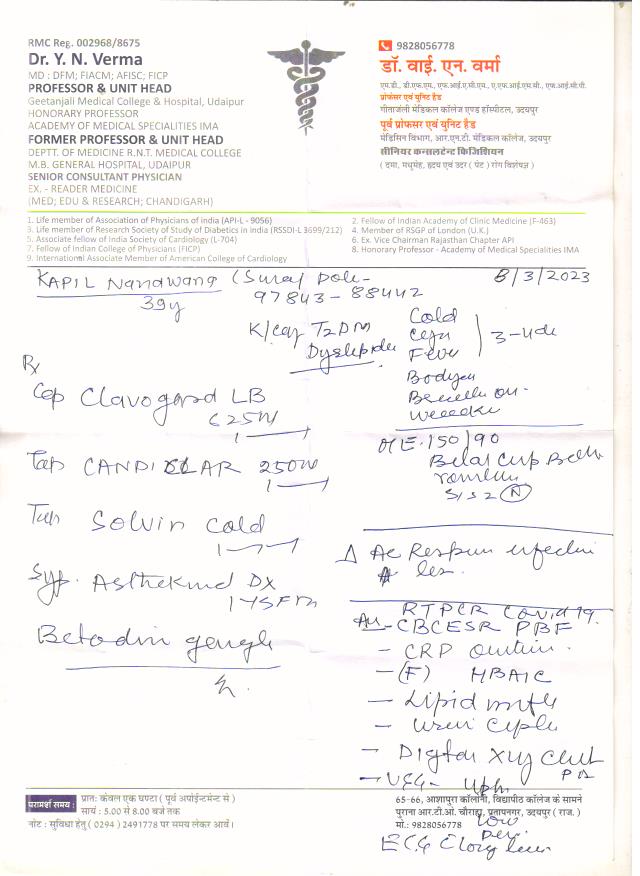 RMC Reg. 002968/8675
Dr. Y. N. Verma
MD : DFM; FIACM; AFISC; FICP
PROFESSOR & UNIT HEAD
Geetanjali Medical College & Hospital, Udaipur
HONORARY PROFESSOR
ACADEMY OF MEDICAL SPECIALITIES IMA
FORMER PROFESSOR & UNIT HEAD
DEPTT. OF MEDICINE R.N.T. MEDICAL COLLEGE
M.B. GENERAL HOSPITAL, UDAIPUR
SENIOR CONSULTANT PHYSICIAN
EX. - READER MEDICINE
(MED; EDU & RESEARCH; CHANDIGARH)
9828056778
डॉ. वाई. एन. वर्मा
एम.डी., डी.एफ.एम., एफ.आई.ए.सी.एम., ए.एफ.आई.एस.सी., एफ.आई.सी.पी.
प्रोफेसर एवं यूनिट हैड
गीतांजली मेडिकल कॉलेज एण्ड हॉस्पीटल, उदयपुर
पूर्व प्रोफेसर एवं यूनिट हैड
मेडिसिन विभाग, आर.एन.टी. मेडिकल कॉलेज, उदयपुर
सीनियर कन्सलटेन्ट फिजिशियन
( दमा, मधुमेह, हृदय एवं उदर ( पेट ) रोग विशेषज्ञ )
1. Life member of Association of Physicians of india (API-L - 9056)
2. Fellow of Indian Academy of Clinic Medicine (F-463)
3. Life member of Research Society of Study of Diabetics in India (RSSDI-L 3699/212)
4. Member of RSGP of London (U.K.)
5. Associate fellow of India Society of Cardiology (L-704)
6. Ex. Vice Chairman Rajasthan Chapter API
7. Fellow of Indian College of Physicians (FICP)
8. Honorary Professor - Academy of Medical Specialities IMA
9. International Associate Member of American College of Cardiology
KAPIL Nandwana (Suraj Pole-
8/3/2023
39y
97843-88442
T2DM
Cold
Fever
3-4
Rx
Cap Clavogard LB
625
O/E. 150/90
S1S2 (N)
Tab CANDICLAR 250
Tab Solvin Cold
Δ Ac
Syp. DX
RTPCR Covid 19.
CBC ESR PBF
Betadin gargle
- CRP
- (F) HBA1C
- Lipid
-
- Digital Xray Chest
PA
ECG
परामर्श समय :
प्रात: केवल एक घण्टा ( पूर्व अपॉईन्टमेन्ट से )
सायं : 5.00 से 8.00 बजे तक
नोट : सुविधा हेतु ( 0294 ) 2491778 पर समय लेकर आवें।
65-66, आशापुरा कॉलोनी, विद्यापीठ कॉलेज के सामने
पुराना आर.टी.ओ. चौराहा, प्रतापनगर, उदयपुर ( राज. )
मो.: 9828056778